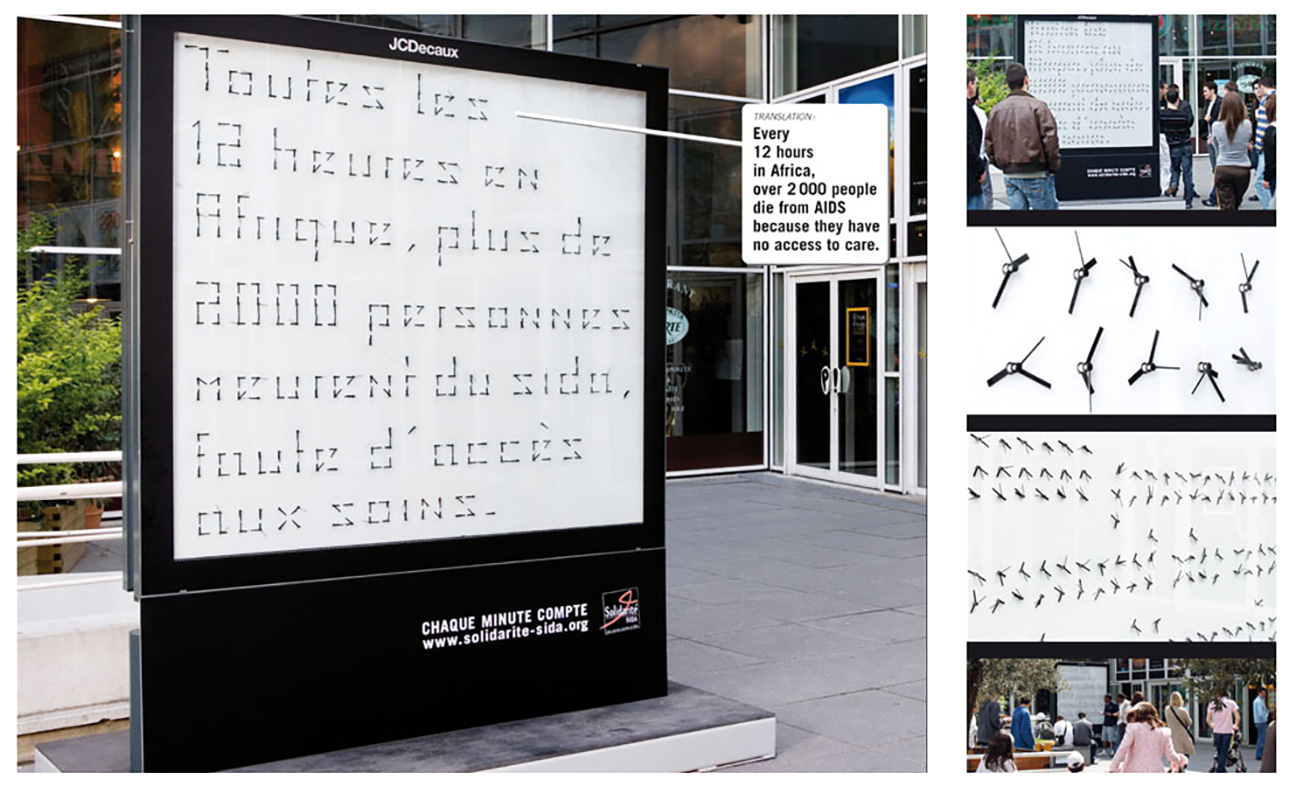 JCDecaux
Toutes les
12 heures en
Afrique, plus de
2000 personnes
meurent du sida,
faute d'accès
aux soins.
CHAQUE MINUTE COMPTE
www.solidarite-sida.org
Solidarité
SIDA
TRANSLATION:
Every
12 hours
in Africa,
over 2 000 people
die from AIDS
because they have
no access to care.
JCDecaux
CHAQUE MINUTE COMPTE
www.solidarite-sida.org